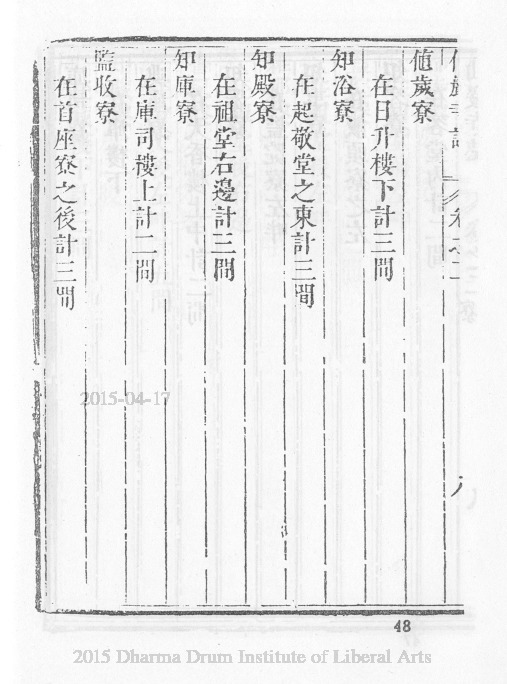 值歲寮
在日升樓下計三間
知浴寮
在起敬堂之東計三間
知殿寮
在祖堂右邊計三間
知庫寮
在庫司樓上計二間
監收寮
在首座寮之後計三間
48
2015-04-17
2015 Dharma Drum Institute of Liberal Arts